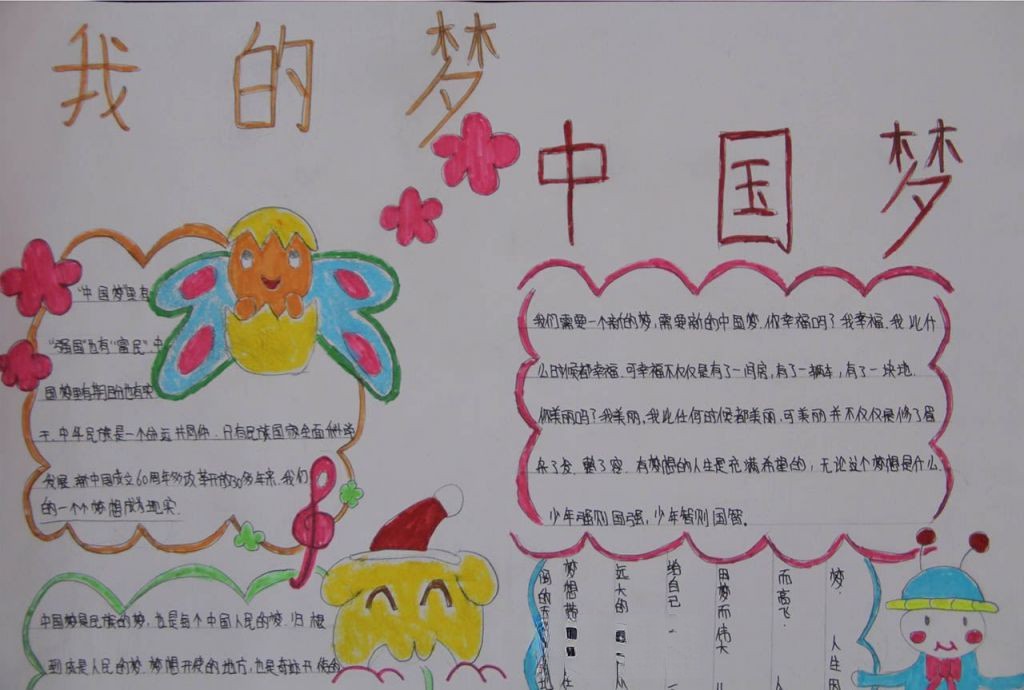 我的梦
中国梦
"中国梦"里有
"强国"也有"富民".中
国梦里有期目也有实
干.中华民族是一个命运共同体.只有民族国家全面科学
发展.新中国成立60周年多改革开放30多年来.我们
的一个个梦想成为现实.
我们需要一个新的梦,需要新的中国梦.你幸福吗?我幸福.我比什
么时候都幸福.可幸福不仅仅是有了一间房,有了一辆车,有了一块地.
你美丽吗?我美丽,我比任何时候都美丽.可美丽并不仅仅是修了眉
染了发.整了容.有梦想的人生是充满希望的,无论这个梦想是什么.
少年强则国强,少年智则国智.
中国梦是民族的梦,也是每个中国人民的梦.归根
到底是人民的梦.梦想开使的地方,也是奇迹开使的
梦.人生因
而高飞.人
用梦而伟大
给自己
远大的
梦想